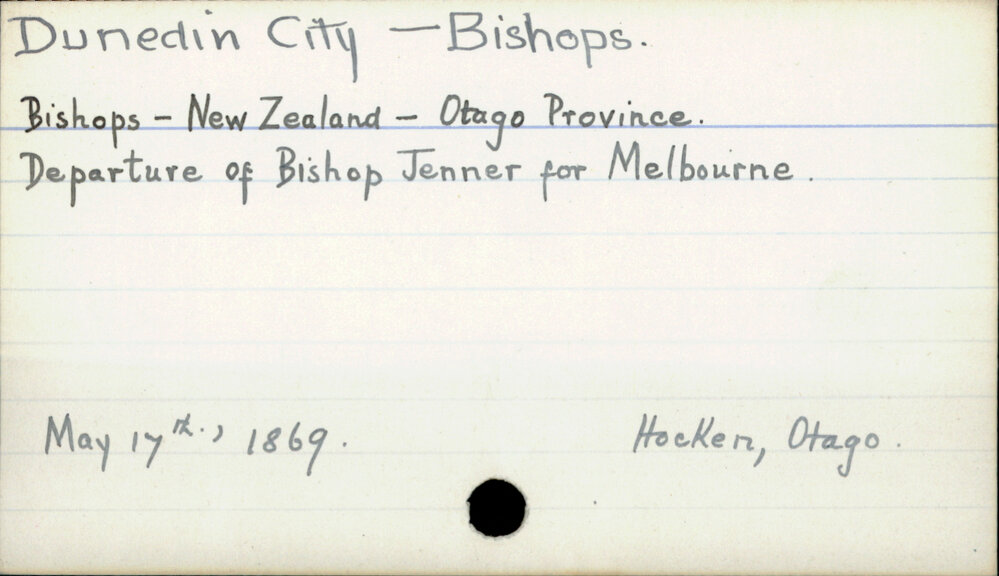 Dunedin City — Bishops.
Bishops - New Zealand - Otago Province.
Departure of Bishop Jenner for Melbourne.
May 17th., 1869. Hocken, Otago.